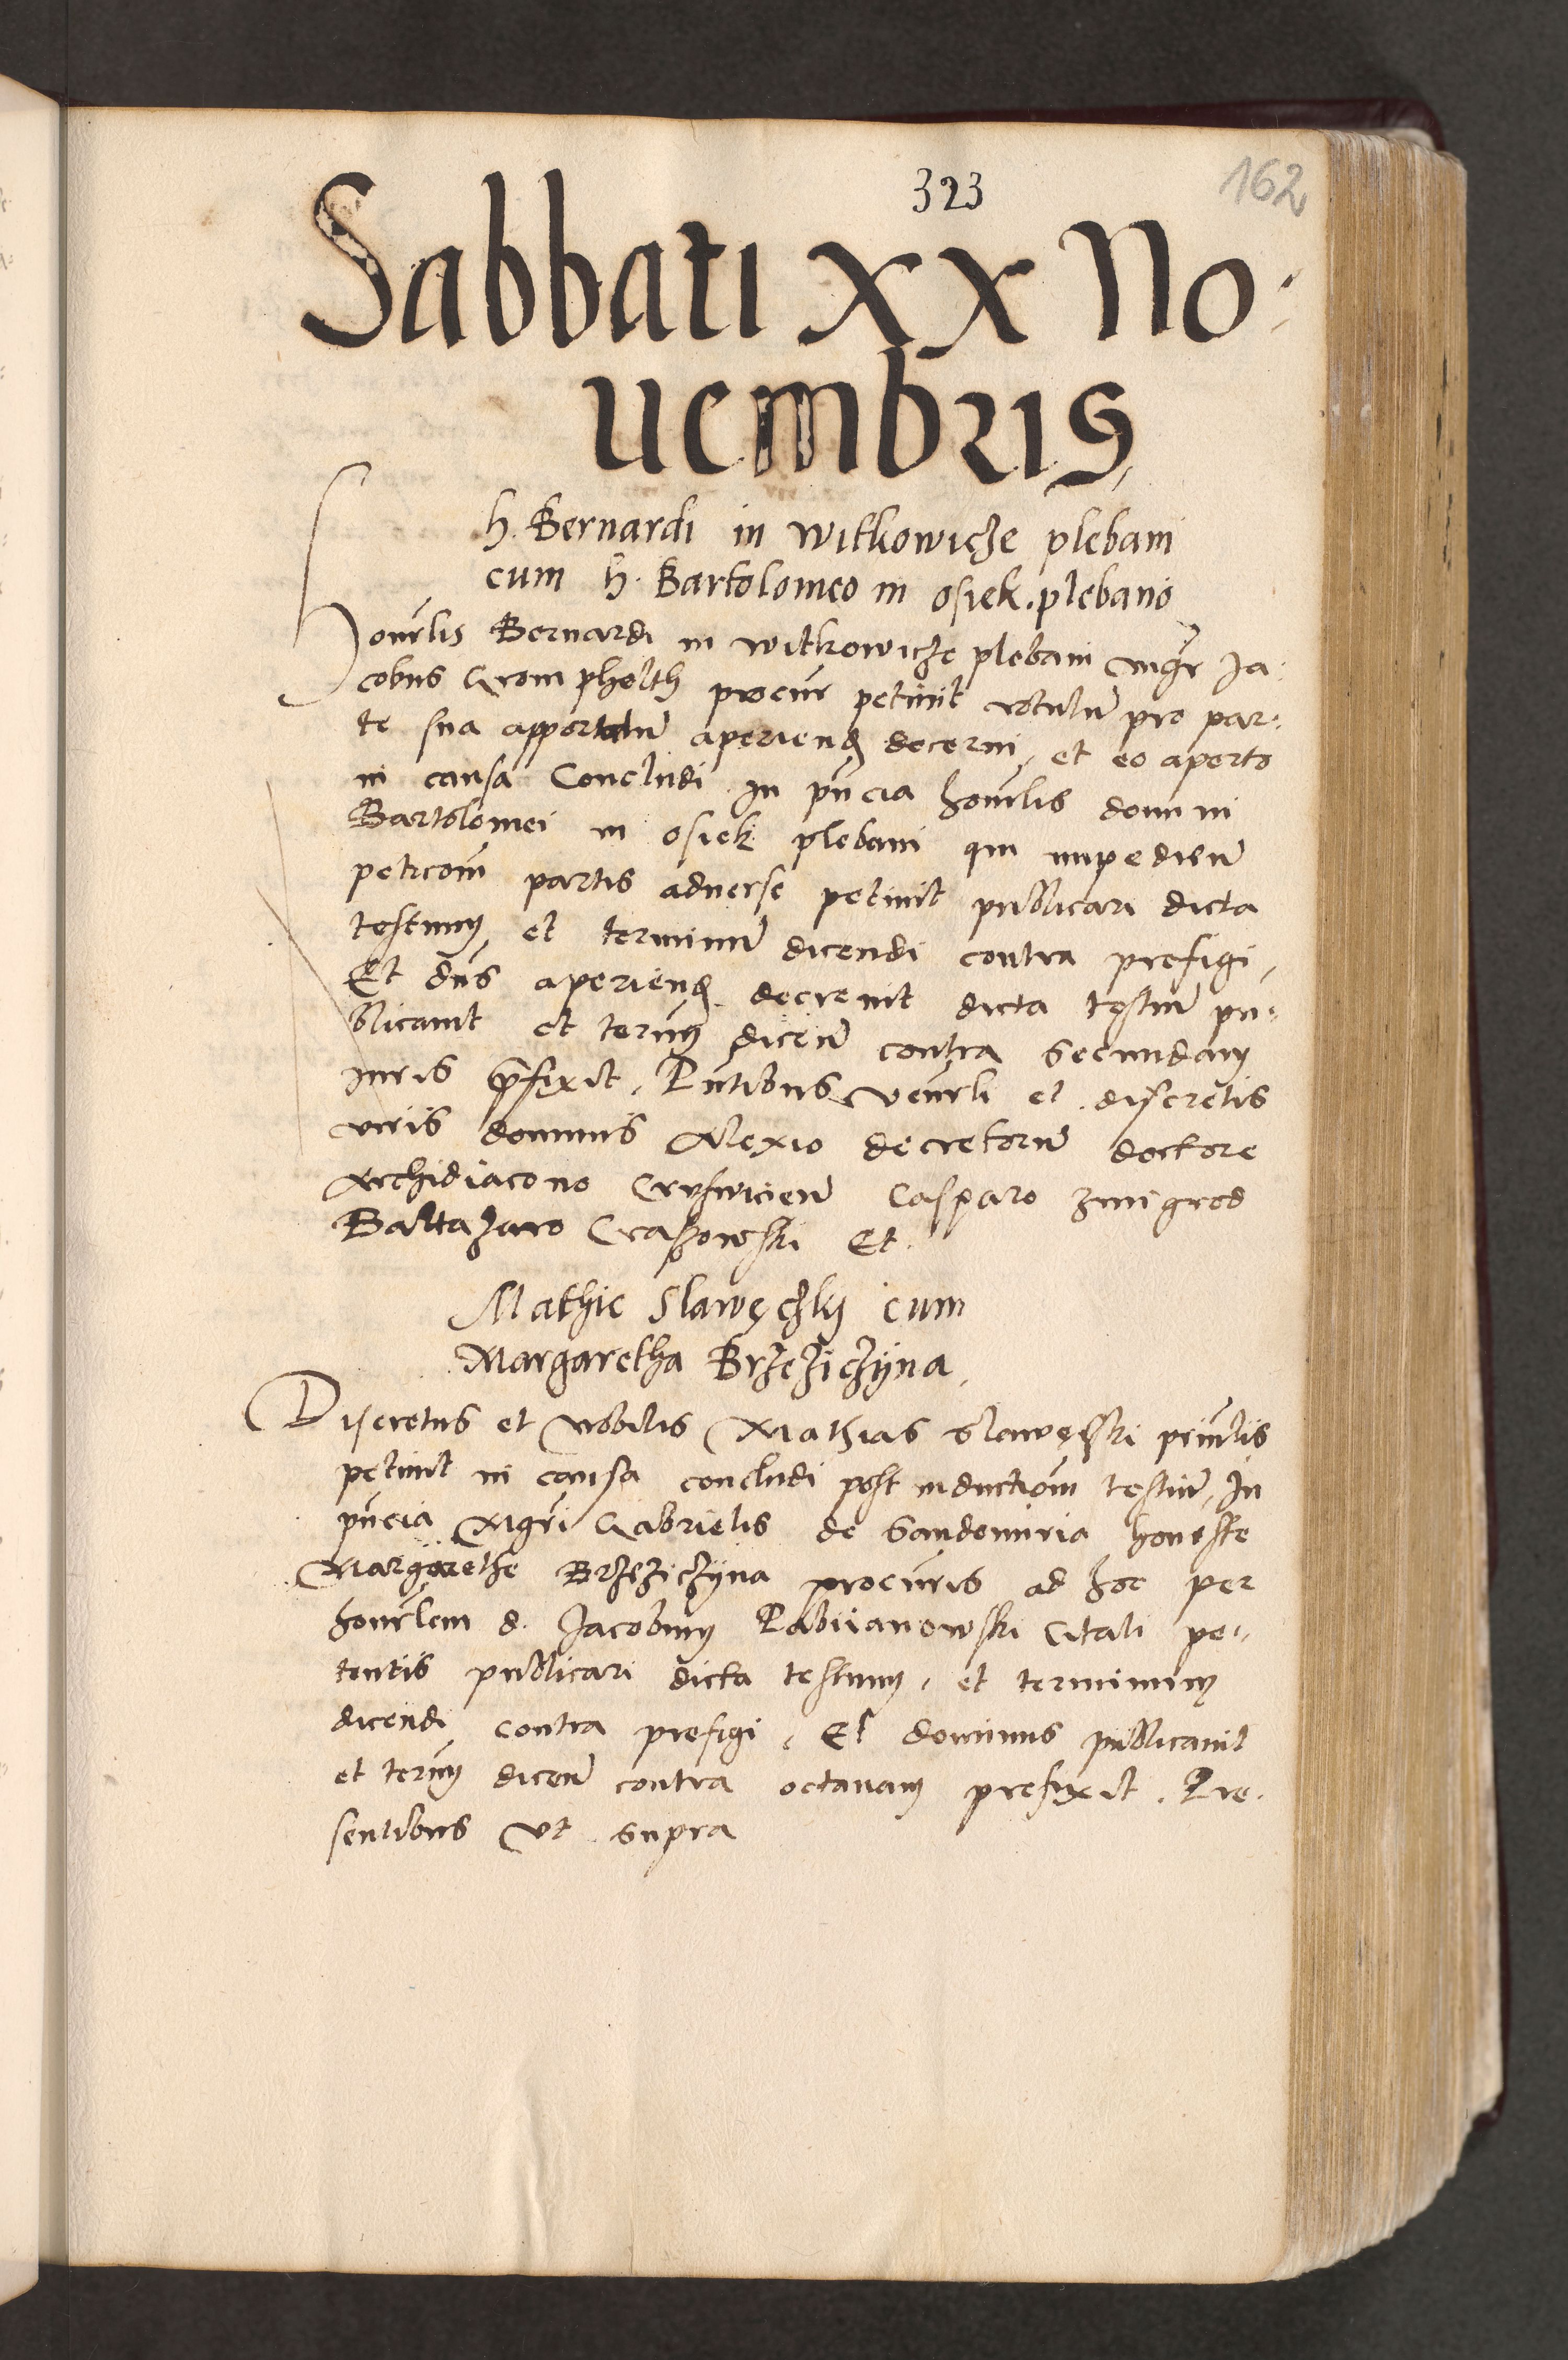 323
162
Sabbati XX No-
uembris,
h. Bernardi in witkowicze plebani
cum h. Bartolomeo in osiek plebano
Honrlis Bernardi in witkowicze plebani mgr Ja-
cobus Grompholth procur petiuit rotulum pro par-
te sua apportatum aperiend decerni, et eo aperto
in causa Concludi In pncia honrlis domini
Bartolomei in osiek plebani qui impedien
peticom partis aduerse petiuit publicari dicta
testium et terminum dicendi contra prefigi,
Et dns aperiend decreuit dicta testium pu-
blicauit et termn dicen contra secundam
iuris prefixit, Pntibus venrli et discretis
viris dominis Alexio decretorum doctore
Archidiacono Crusuicien Casparo zmigrod
Baltazaro Et.
Mathie Slawęczky cum
Margaretha Brzeziczÿna,
Discretus et Nobilis Mathias principlis
petiuit in causa concludi post inductiom testium, In
pncia Mgri Gabrielis de Sandomiria honeste
Margarethe Brzeziczÿna procuris ad hoc per
honrlem d. Jacobum Pabiianowski Citati pe-
tentis publicari dicta testium, et terminum
dicendi contra prefigi, Et dominus publicauit
et termn dicen contra octauam prefixit. Pre-
sentibus vt supra